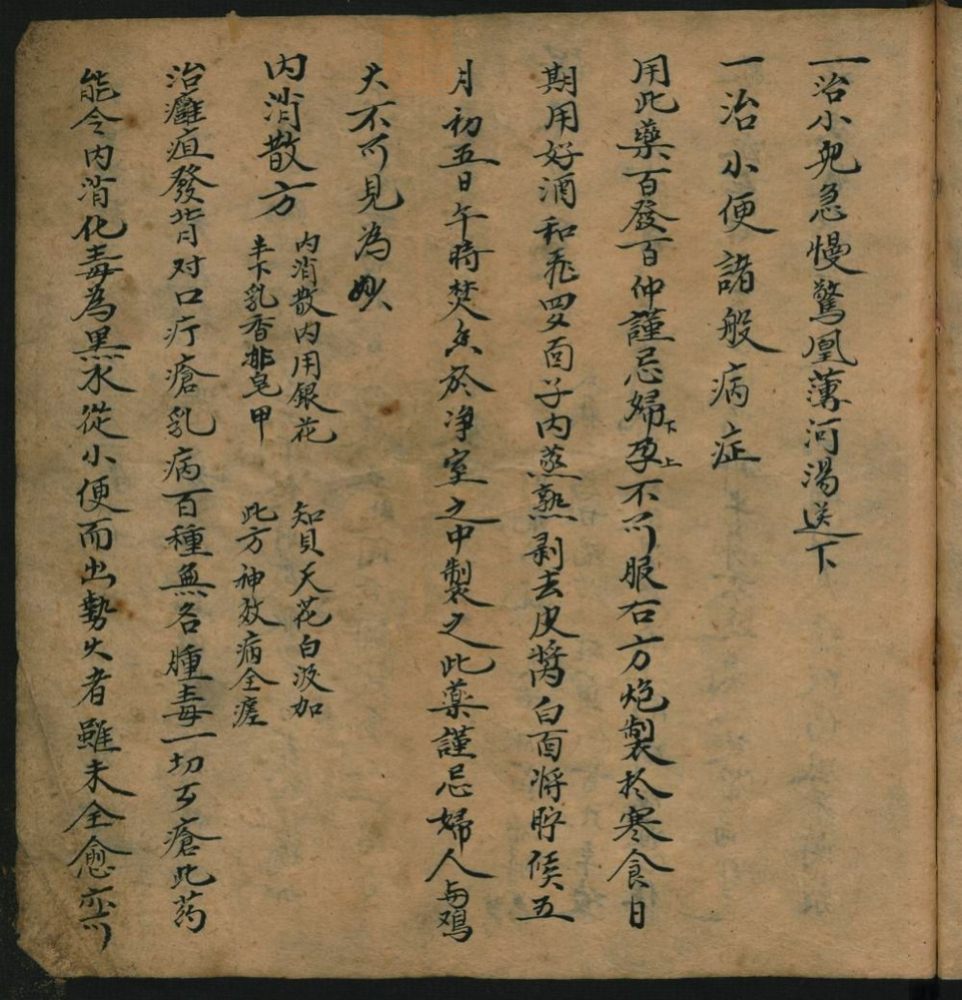 一治小兒急慢驚凰薄河湯送下
一治小便諸般病症
用此藥百發百仲謹忌婦下孕上不可服右方炮製於寒食日
期用好酒和飛罗面子內蒸熟剥去皮醬白面將貯候五
月初五日午時焚香於净室之中製之此藥謹忌婦人與鳮
犬不可見為妙
內消散方
內消散內用銀花 知貝天花白汲加
半下乳香排皂甲 此方神效病全瘥
治癰疽發背对口疔瘡乳病百種無名腫毒一切歹瘡此药
能令內消化毒為黑水從小便而出勢大者雖未全愈亦可